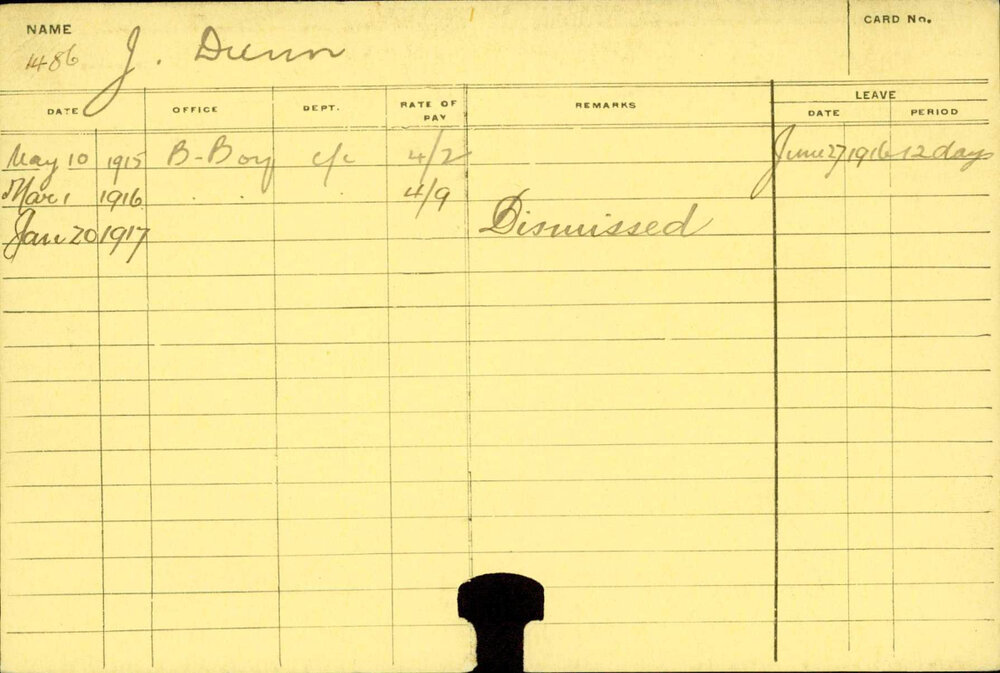 NAME
CARD No.
1486
J. Dunn
DATE OFFICE DEPT. RATE OF PAY REMARKS LEAVE
DATE PERIOD
May 10 1915 B-Boy c/c 4/2 June 27 1916 12 days
Mar 1 1916 . . 4/9
Jan 20 1917 Dismissed